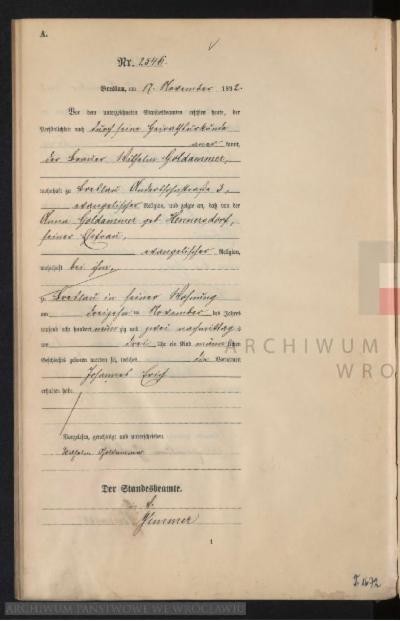 A.
Nr. 2546.
Breslau, am 17. November 1892.
Vor dem unterzeichneten Standesbeamten erschien heute, der
Persönlichkeit nach durch seine Heirathsurkunde
kannt,
der Brauer Wilhelm Goldammer,
wohnhaft zu Breslau 3,
evangelischer Religion, und zeigte an, daß von der
Anna Goldammer geb. Hennersdorf,
seiner Ehefrau,
evangelischer Religion,
wohnhaft bei ihm,
zu Breslau in seiner Wohnung
am dreizehn ten November des Jahres
tausend acht hundert neunzig und zwei nachmittags
um drei Uhr ein Kind männlichen
Geschlechts geboren worden sei, welches die Vornamen
Johannes Erich
erhalten habe.
Vorgelesen, genehmigt und unterschrieben
Wilhelm Goldammer
Der Standesbeamte.
1
ARCHIWUM
WRO
ARCHIWUM PAŃSTWOWE WE WROCŁAWIU